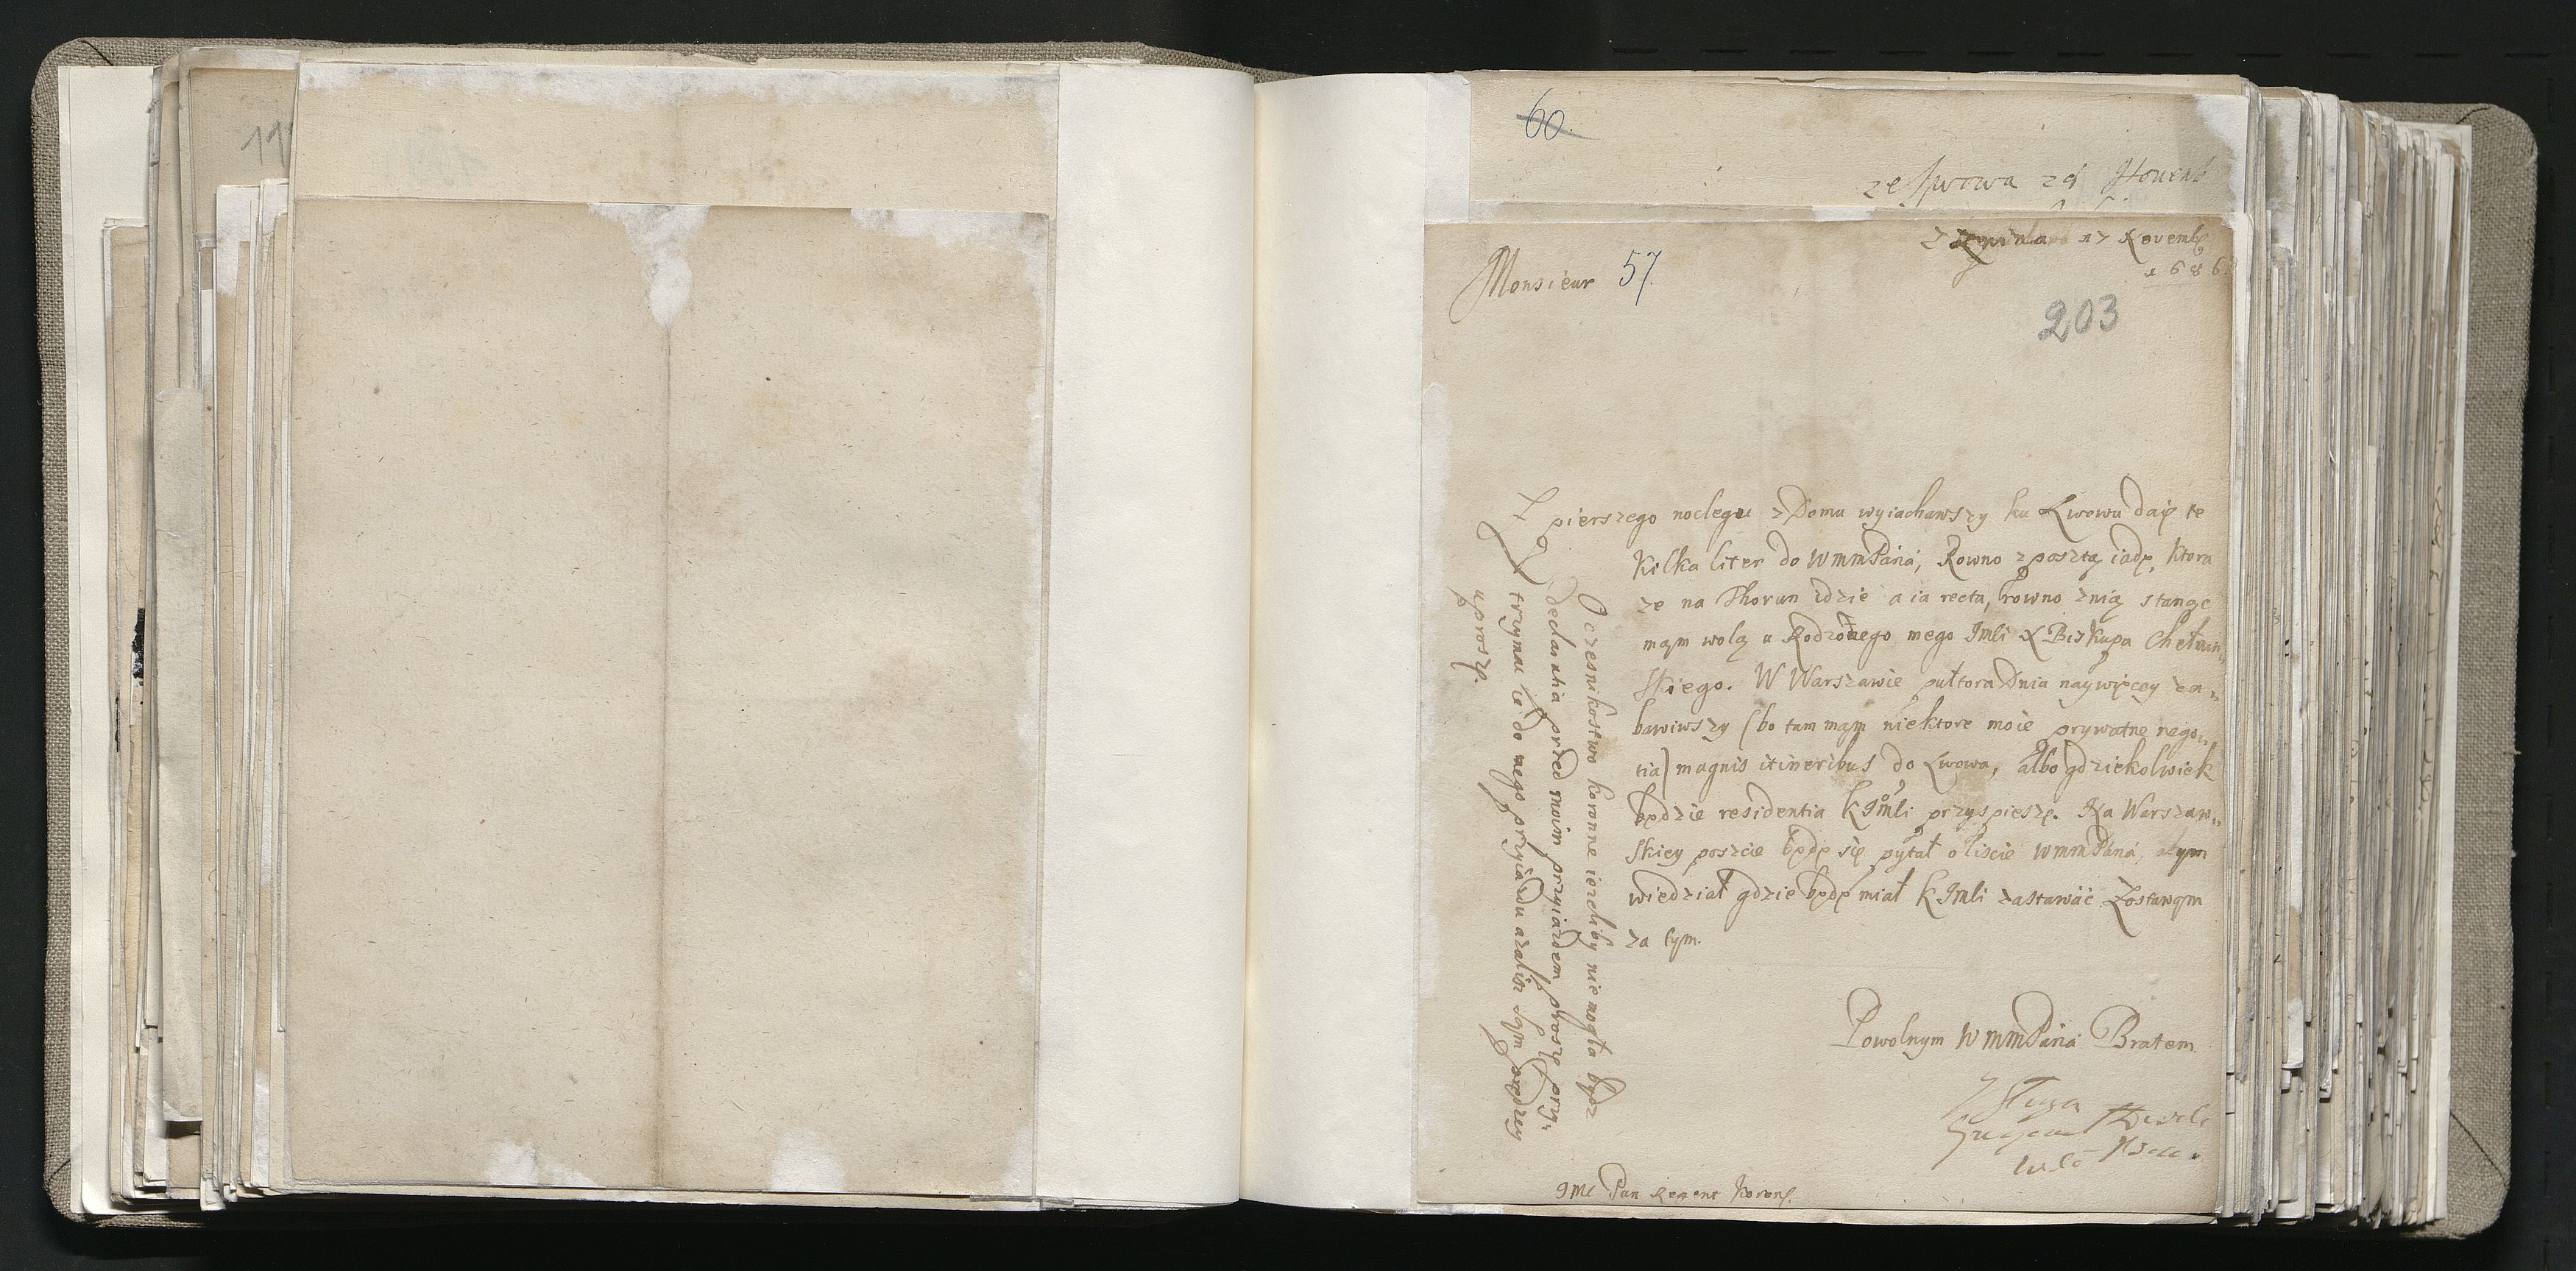 11
60.
ze Lwowa 29
17 Novemb
1686
Monsieur 57.
203
Z pierszego noclegu z Domu wyiachawszy ku Lwowu daię te
kilka liter do WmmPána, Rowno z posztą iadę, ktora
ze na Thorun idzie a ia recta, rowno znią stanąc
mąm wolą u Rodzonego mego Jmli X Biskupa Chełmin„
skiego. W Warszawie pułtora Dnia naywięcey za„
bawiwszy (bo tam mąm niektore moie prywatne nego„
tia) magnis itineribus do Lwowa, albo gdziekolwiek
będzie residentia K Jmli przyspieszę. Na Warszaw„
skiey poszcie będę się pytał o liscie WmmPána, abym
wiedział gdzie będę miał K Jmli zastawać. Zostawąm
za tym.
Powolnym WmmPána Bratem
y sługą
Jmc Pan Regent Koron.
O czesnikostwo koronne iezeliby nie mogła bydz
declaratia przed moim przyiazdem proszę przy„
trzymac ie do mego przyiazdu azaliz sąm prędzey
uproszę.